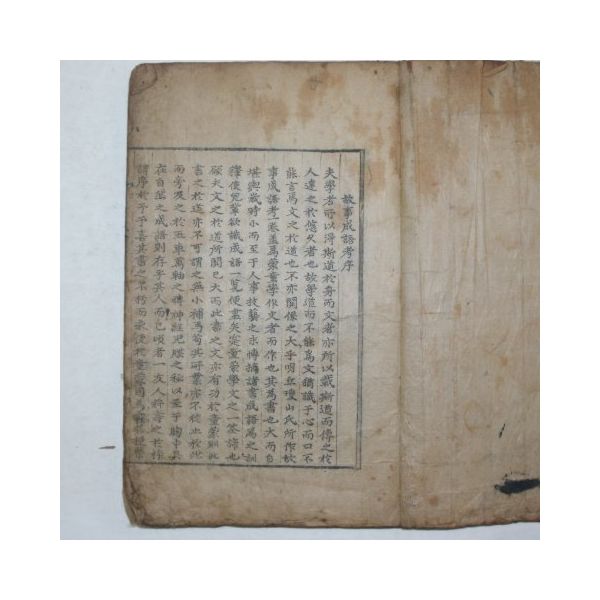 故事成語考序
夫學者所以得斯道於身而文者亦所以載斯道而傳之於
人遠之於悠久者也故學道而不能爲文猶識于心而口不
能言爲文之於道也不亦關係之大乎明丘瓊山氏所作故
事成語考一卷盖爲蒙童學作文者而作也其爲書也大而自
堪輿歲時小而至于人事技藝之末博摘諸書成語爲之訓
釋使兒輩欲識成語一覽便盡矣寔童蒙學文之一筌蹄也
顧天文之於道所關已大而此書之文亦有功於童蒙則此
書之於道亦不可謂之無小補焉苟其研業亦不徒止於此
而旁及之於五車萬軸之 神經 牒之秘以至于胸中具
在自 之成語則存乎其人而已頃者一友人粹 之於梓
請序於予予喜其書之不朽而永使於童